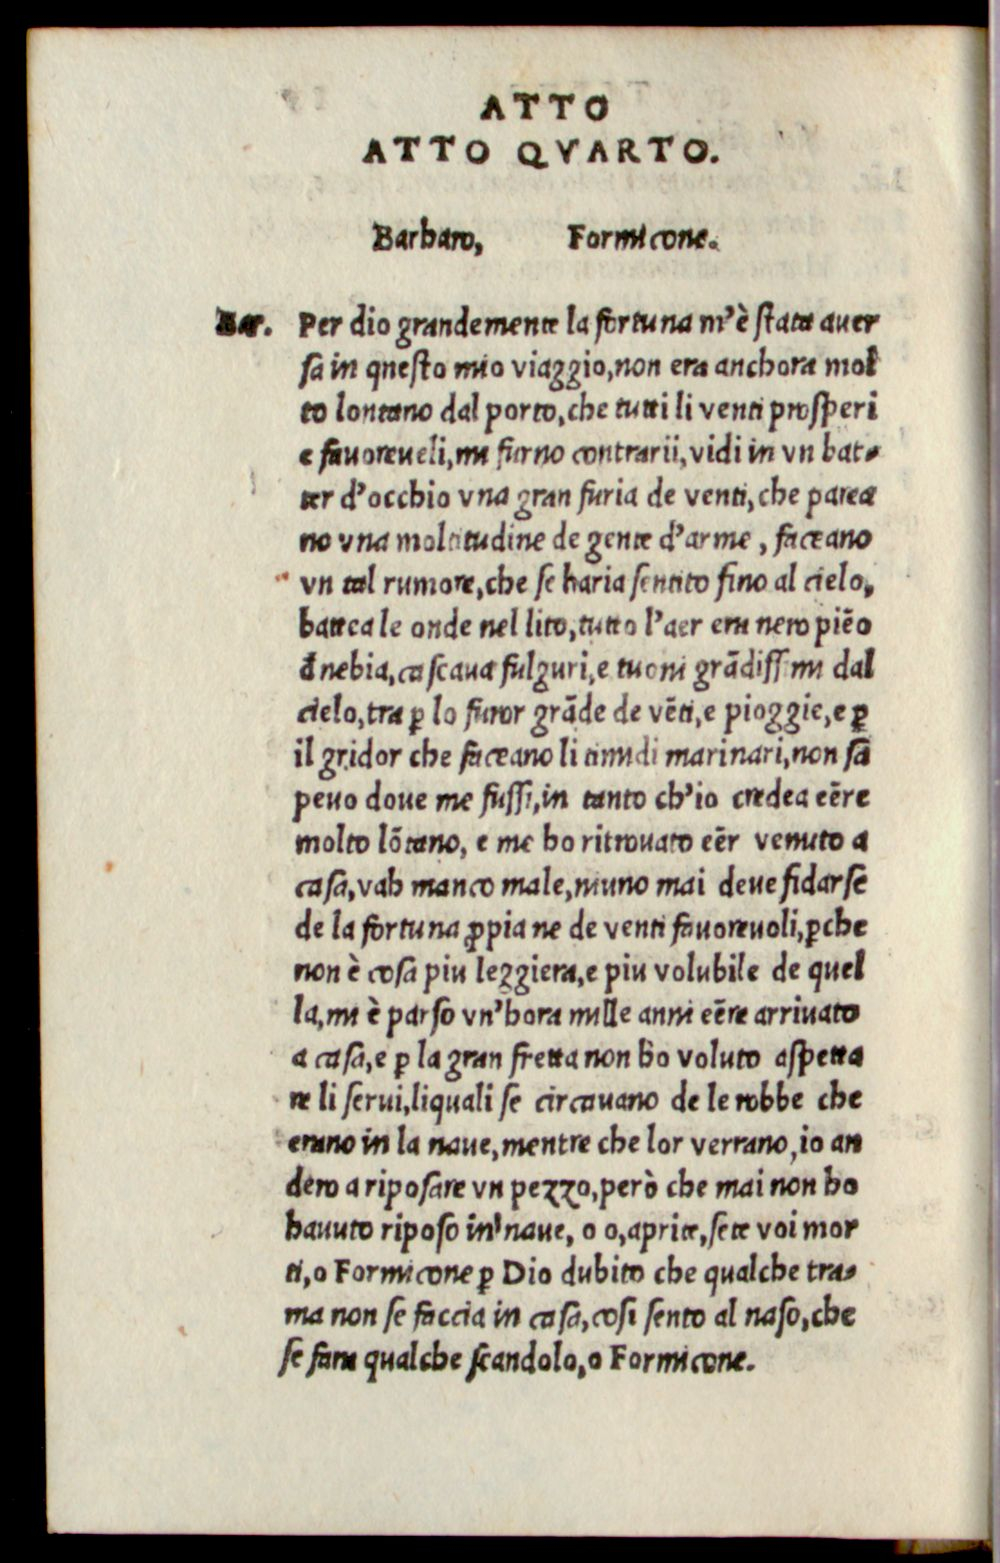 ATTO
ATTO QVARTO.
Barbaro, Formicone.
Bar. Per dio grandemente la fortuna m'è ſtata auer
ſa in queſto mio viaggio, non era anchora mol
to lontano dal porto, che tutti li venti proſperi
e fauoreueli, mi furno contrarii, vidi in vn bat-
ter d'occhio vna gran furia de venti, che parea
no vna moltitudine de gente d'arme, faceano
vn tal rumore, che ſe haria ſentito fino al cielo,
battea le onde nel lito, tutto l'aer era nero piēo
đ nebia, caſcaua fulguri, e tuoni grādiſſimi dal
cielo, tra ꝑ lo furor grāde de vēti, e pioggie, e ꝑ
il gridor che faceano li timidi marinari, non ſa
peuo doue me fuſſi, in tanto ch'io credea eēre
molto lōtano, e me ho ritrouato eēr venuto a
caſa, vah manco male, niuno mai deue fidarſe
de la fortuna ꝓpia ne de venti fauoreuoli, ꝑche
non è coſa piu leggiera, e piu volubile de quel
la, mi è parſo vn'hora mille anni eēre arriuato
a caſa, e ꝑ la gran fretta non ho voluto aſpetta
re li ſerui, liquali ſe circauano de le robbe che
erano in la naue, mentre che lor verrano, io an
dero a ripoſare vn pezzo, però che mai non ho
hauuto ripoſo in naue, o o, aprite, ſete voi mor
ti, o Formicone ꝑ Dio dubito che qualche tra-
ma non ſe faccia in caſa, coſi ſento al naſo, che
ſe fara qualche ſcandolo, o Formicone.